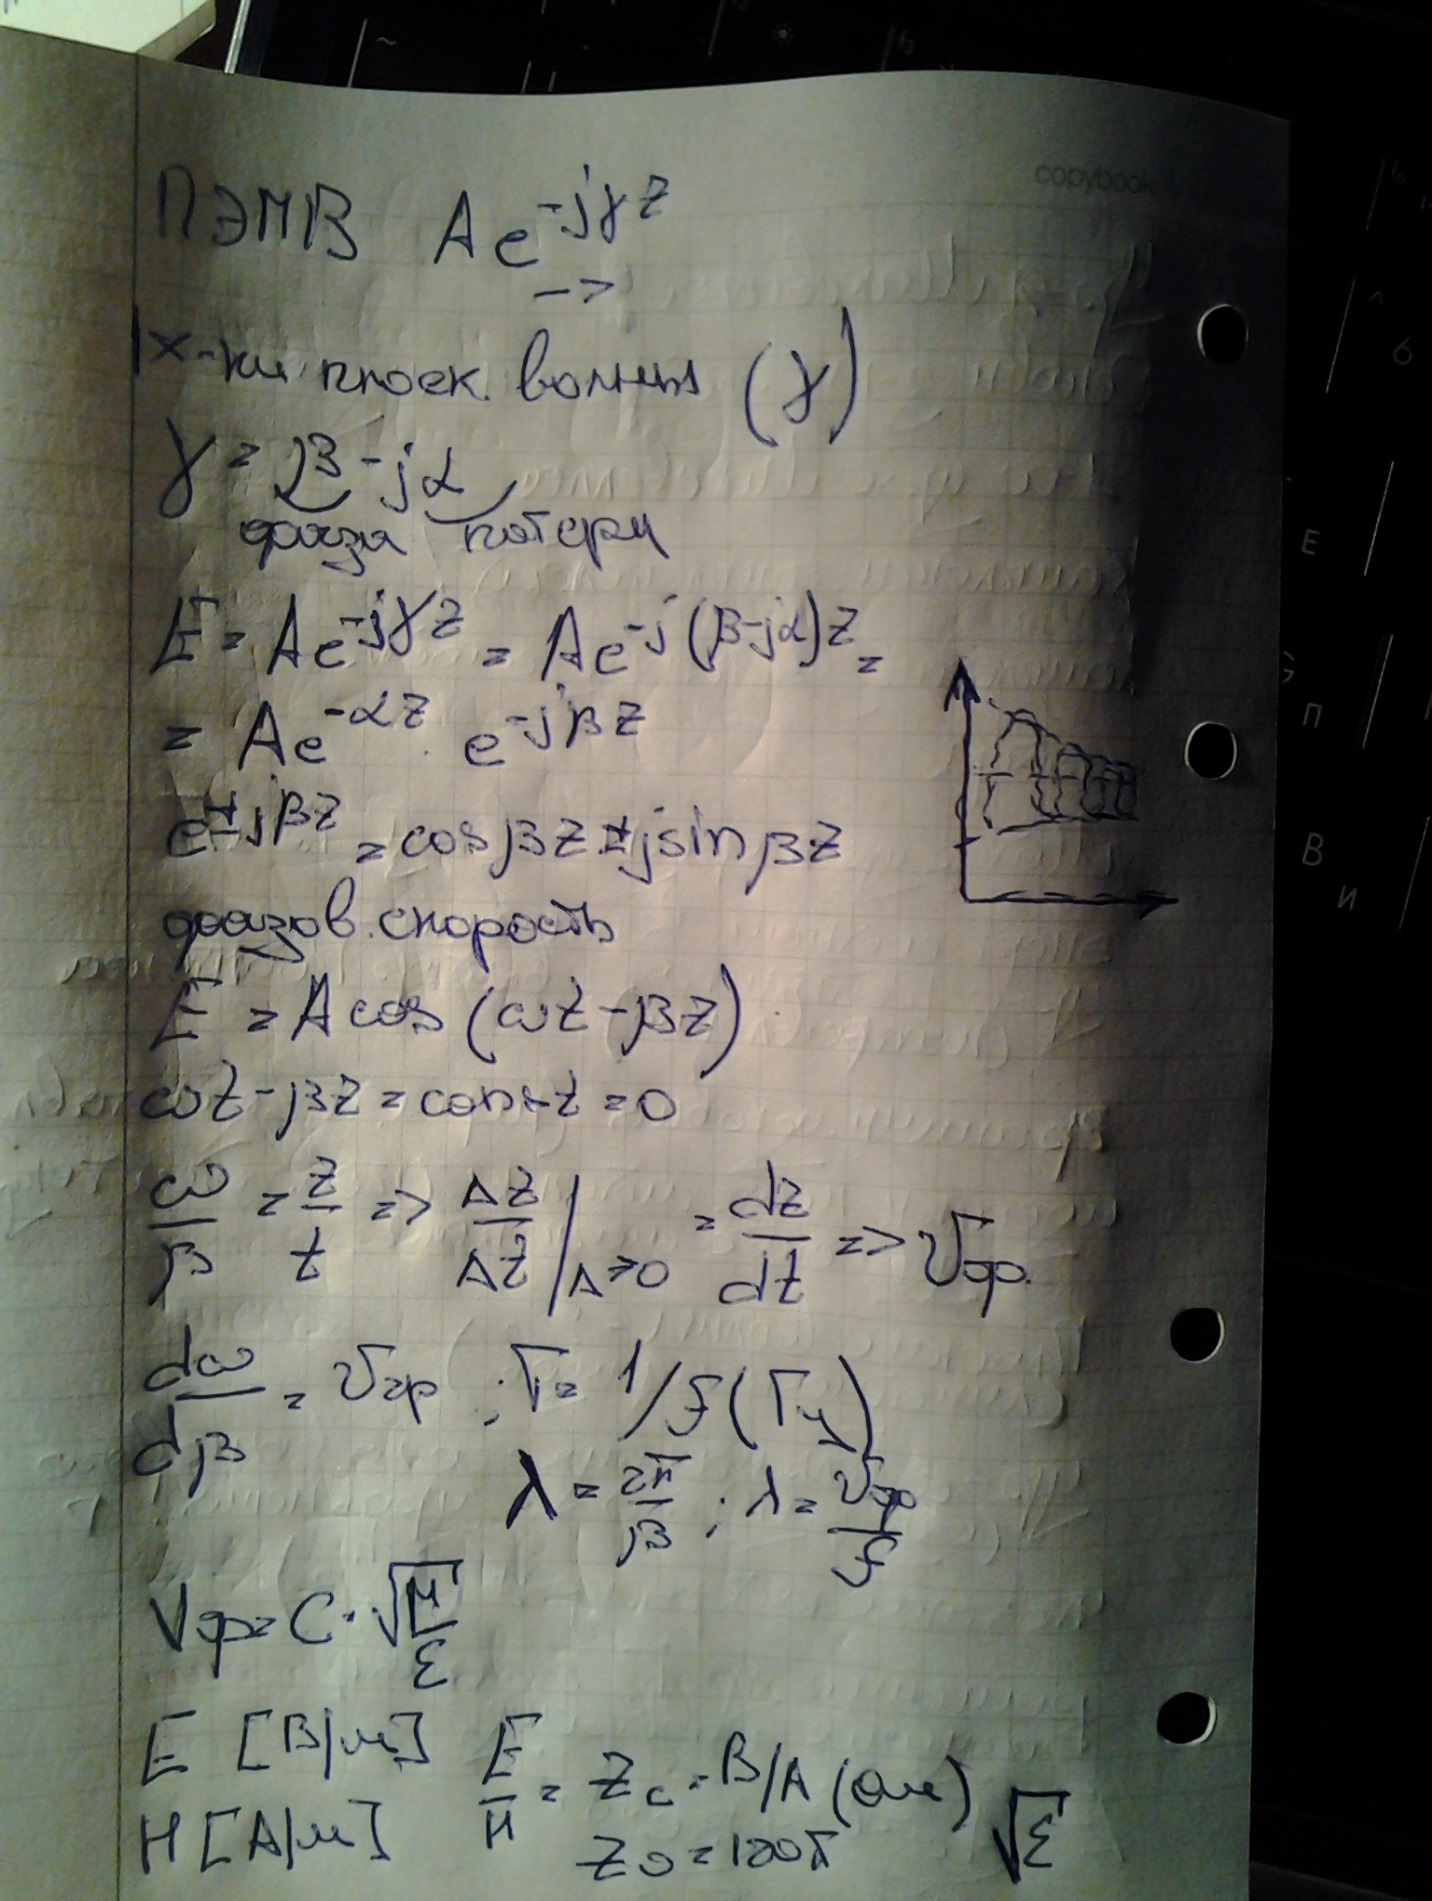 copybook
ПЭМВ Ae^{-jγz}
->
х-ки плоск. волны (γ)
γ = β - jα
фаза потери
E = Ae^{-jγz} = Ae^{-j(β-jα)z} =
= Ae^{-αz} · e^{-jβz}
e^{±jβz} = cosβz ± jsinβz
фазов. скорость
E = A cos (ωt - βz)
ωt - βz = const = 0
ω/β = z/t => Δz/Δt |Δ→0 = dz/dt => Vф.
dω/dβ = Vгр ; T = 1/f (Гц)
λ = 2π/β ; λ = Vф/f
Vф = C · √(μ/ε)
E [В/м] E/H = Zc = В/А (Ом)
H [А/м] Z0 = 120π √ε
~
6
Е
П
В
И